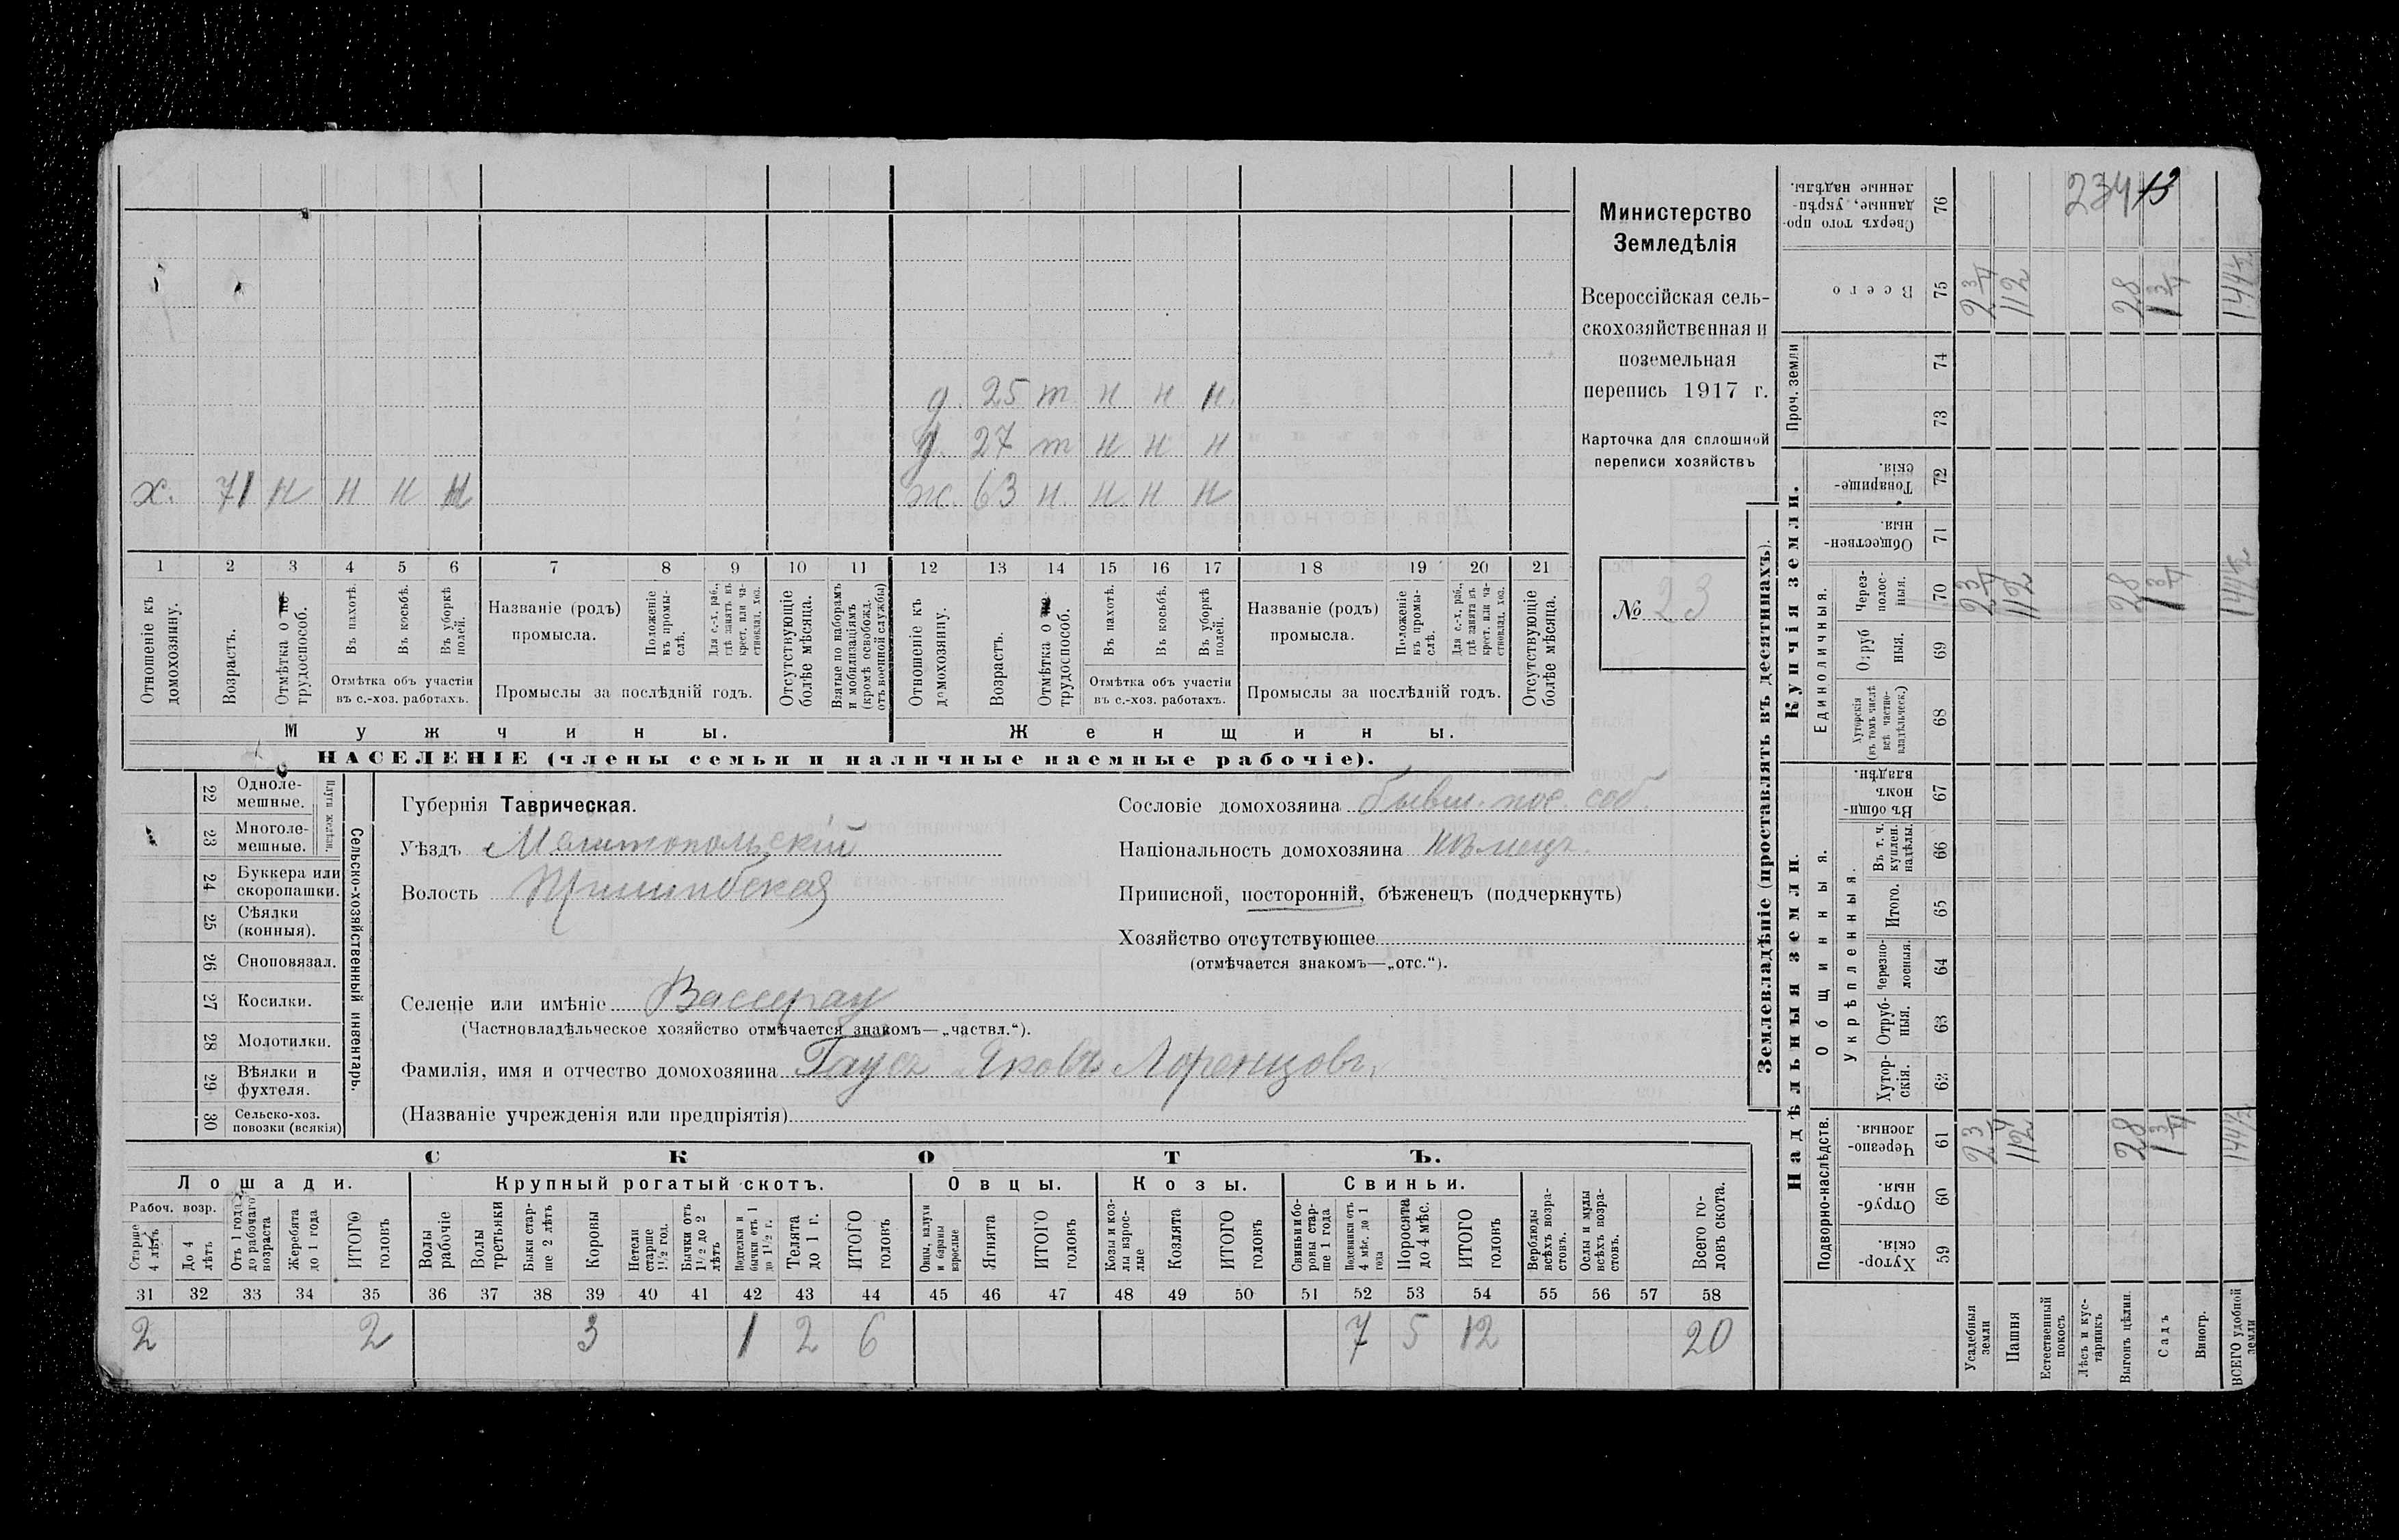 х. 71 н н н н
д. 25 т н н н.
д. 27 т н н н
ж. 63 н. н. н н
1 2 3 4 5 6 7 8 9 10 11 12 13 14 15 16 17 18 19 20 21
Отношеніе къ домохозяину.
Возрастъ.
Отмѣтка о не трудоспособ.
Въ пахотѣ.
Въ косьбѣ.
Въ уборкѣ полей.
Отмѣтка объ участіи въ с.-хоз. работахъ.
Названіе (родъ) промысла.
Положеніе въ промы-слѣ.
Для с.-х. раб., гдѣ занятъ въ крест. или ча-стновлад. хоз.
Промыслы за послѣдній годъ.
Отсутствующіе болѣе мѣсяца.
Взятые по наборамъ и мобилизаціямъ (кромѣ освобожд. отъ военной службы)
Отношеніе къ домохозяину.
Возрастъ.
Отмѣтка о не трудоспособ.
Въ пахотѣ.
Въ косьбѣ.
Въ уборкѣ полей.
Отмѣтка объ участіи въ с.-хоз. работахъ.
Названіе (родъ) промысла.
Положеніе въ промы-слѣ.
Для с.-х. раб., гдѣ занята въ крест. или ча-стновлад. хоз.
Промыслы за послѣдній годъ.
Отсутствующіе болѣе мѣсяца.
Мужчины. Женщины.
НАСЕЛЕНІЕ (члены семьи и наличные наемные рабочіе).
Министерство
Земледѣлія
Всероссійская сель-
скохозяйственная и
поземельная
перепись 1917 г.
Карточка для сплошной
переписи хозяйствъ
№ 23
22 Одноле-мешные.
23 Многоле-мешные.
Плуги желѣзн.
24 Буккера или скоропашки.
25 Сѣялки (конныя).
26 Сноповязал.
27 Косилки.
28 Молотилки.
29 Вѣялки и фухтеля.
30 Сельско-хоз. повозки (всякія)
Сельско-хозяйственный инвентарь.
Губернія Таврическая.
Уѣздъ Мелитопольскій
Волость Пришибская
Селеніе или имѣніе Вассерау
(Частновладѣльческое хозяйство отмѣчается знакомъ—„частвл.“).
Фамилія, имя и отчество домохозяина Гаусъ Яковъ Лоренцовъ.
(Названіе учрежденія или предпріятія)
Сословіе домохозяина бывш. пос соб.
Національность домохозяина нѣмецъ.
Приписной, посторонній, бѣженецъ (подчеркнуть)
Хозяйство отсутствующее
(отмѣчается знакомъ—„отс.“).
СКОТЪ.
Лошади. Крупный рогатый скотъ. Овцы. Козы. Свиньи.
Рабоч. возр.
Старше 4 лѣтъ
До 4 лѣтъ
Отъ 1 года до рабочаго возраста
Жеребята до 1 года
ИТОГО головъ
Волы рабочіе
Волы третьяки
Быки стар-ше 2 лѣтъ
Коровы
Нетели старше 1½ год.
Бычки отъ 1½ до 2 лѣтъ
Подтелки и бычки отъ 1 до 1½ г.
Телята до 1 г.
ИТОГО головъ
Овцы, валухи и бараны взрослые
Ягнята
ИТОГО головъ
Козы и коз-лы взрос-лые
Козлята
ИТОГО головъ
Свиньи и бо-ровы стар-ше 1 года
Подсвинки отъ 4 мѣс. до 1 года
Поросята до 4 мѣс.
ИТОГО головъ
Верблюды всѣхъ возра-стовъ.
Ослы и мулы всѣхъ возра-стовъ.
Всего го-ловъ скота.
31 32 33 34 35 36 37 38 39 40 41 42 43 44 45 46 47 48 49 50 51 52 53 54 55 56 57 58
2 2 3 1 2 6 7 5 12 20
Землевладѣніе (проставлять въ десятинахъ).
Надѣльныя земли. Купчія земли. Проч. земли
Подворно-наслѣдств.
Общинныя.
Укрѣпленныя.
Единоличныя.
Хутор-скія. 59
Отруб-ныя. 60
Черезпо-лосныя. 61
Хутор-скія. 62
Отруб-ныя. 63
Черезпо-лосныя. 64
Итого. 65
Въ т. ч. куплен. надѣлы. 66
Въ общи-номъ владѣн. 67
Хуторскія (въ томъ числѣ всѣ частно-владѣльческ.) 68
Отруб-ныя. 69
Через-полос-ныя. 70
Обществен-ныя. 71
Товарище-скія. 72
73
74
Всего 75
Сверхъ того про-данные, укрѣп-ленные надѣлы. 76
Усадебныя земли 2 3/4 2 3/4 2 3/4
Пашня 112 112 112
Естественный покосъ
Лѣсъ и кус-тарникъ
Выгонъ цѣлин. 28 28 28
Садъ 1 3/4 1 3/4 1 3/4
Виногр.
ВСЕГО удобной земли 144½ 144½ 144½
234
13